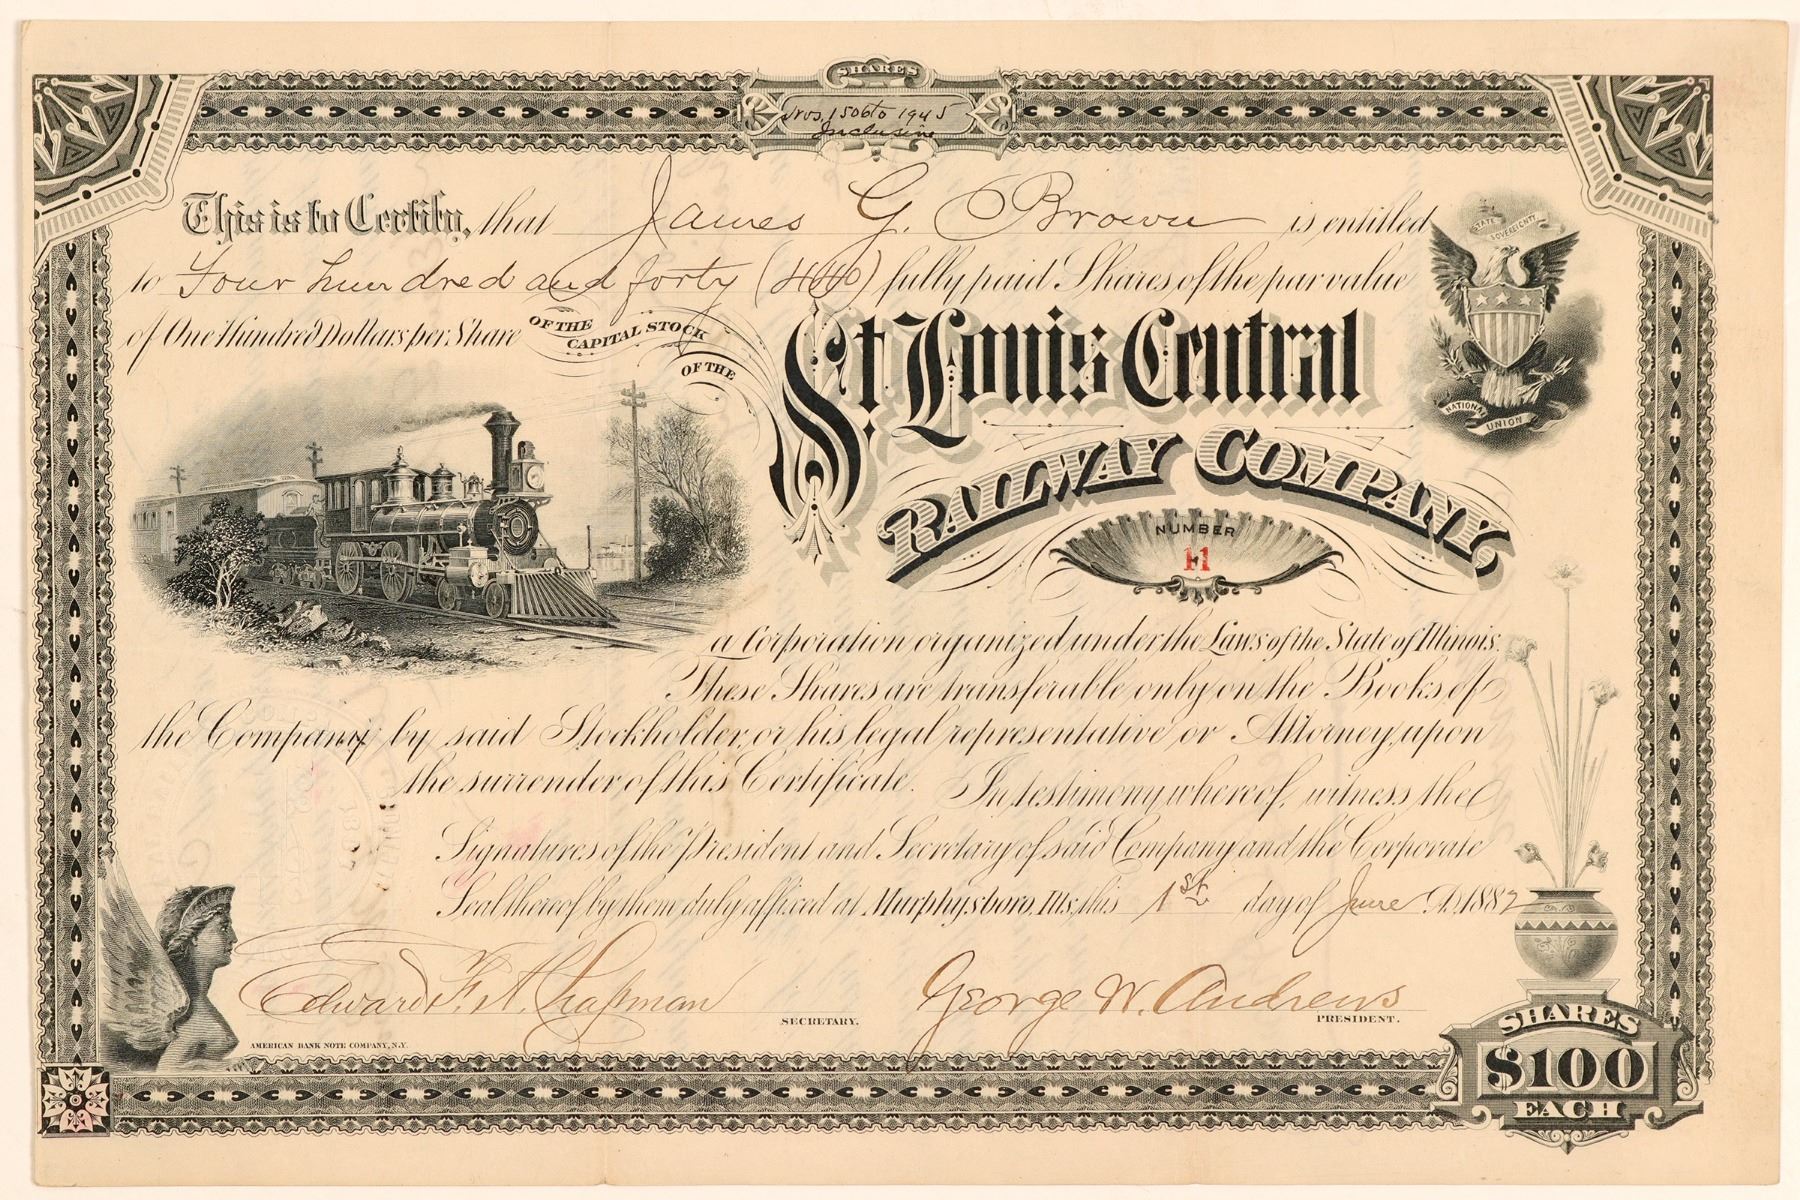 SHARES
Nos. 1506 to 1945
Inclusive
This is to Certify, that James G. Brown is entitled
to Four hundred and forty (440) fully paid Shares of the par value
of One Hundred Dollars per Share OF THE CAPITAL STOCK OF THE
St. Louis Central
RAILWAY COMPANY,
STATE SOVEREIGNTY
NATIONAL UNION
NUMBER
11
a Corporation organized under the Laws of the State of Illinois.
These Shares are transferable only on the Books of
the Company by said Stockholder, or his legal representative or Attorney, upon
the surrender of this Certificate. In testimony whereof, witness the
Signatures of the President and Secretary of said Company and the Corporate
Seal thereof by them duly affixed at Murphysboro, Ills, this 1st day of June A.D. 1882
Edward F. A. Chapman
SECRETARY.
George W. Andrews
PRESIDENT.
AMERICAN BANK NOTE COMPANY, N.Y.
SHARES
$100
EACH